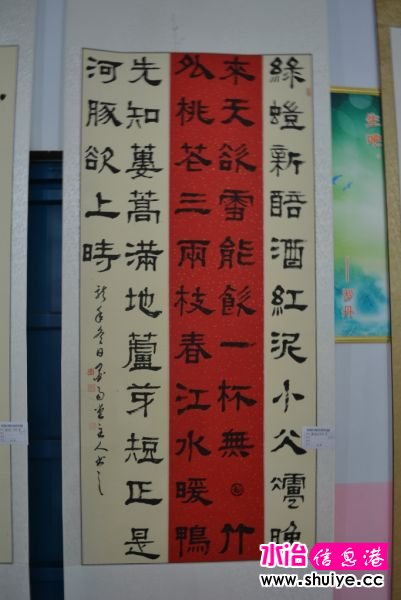 綠螘新醅酒紅泥小火爐晚
來天欲雪能飲一杯無竹
外桃花三兩枝春江水暖鴨
先知蔞蒿滿地蘆芽短正是
河豚欲上時
冬日
主人書之
水冶信息港
www.shuiye.cc